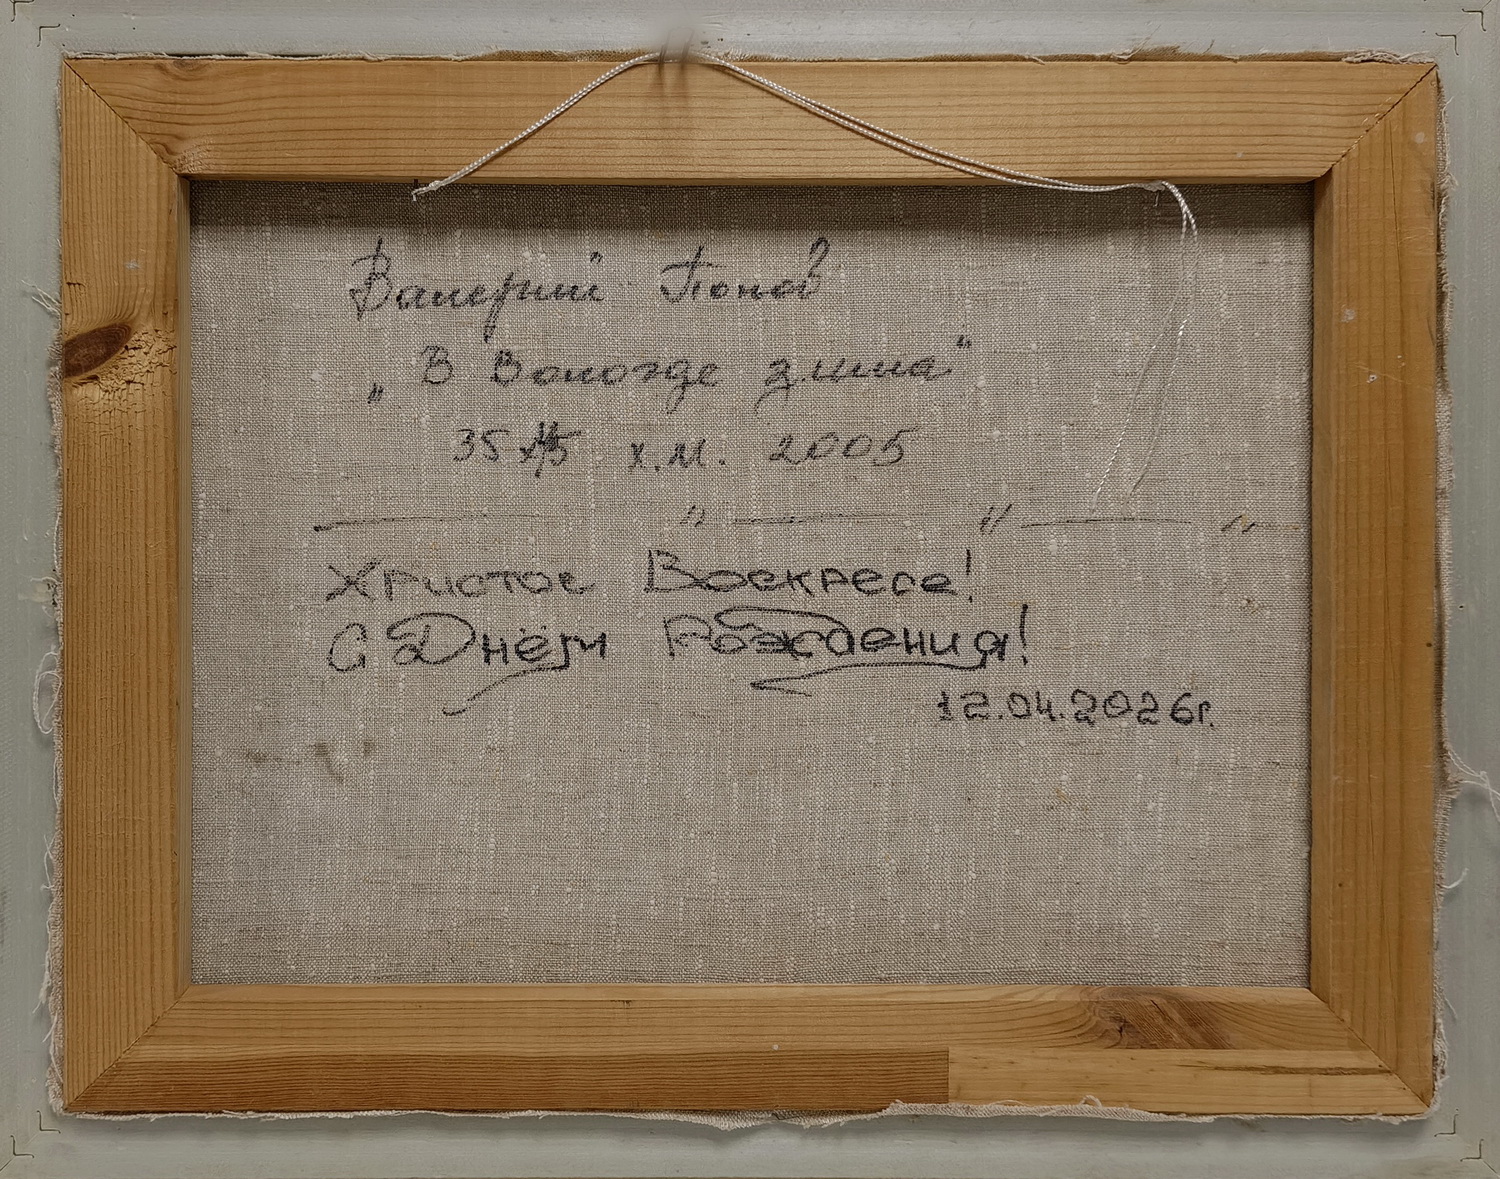 Валерий Попов
„В Вологде зима"
35х45 х.м. 2005
— " — " — " —
Христос Воскресе!
С Днём Рождения!
12.04.2026г.